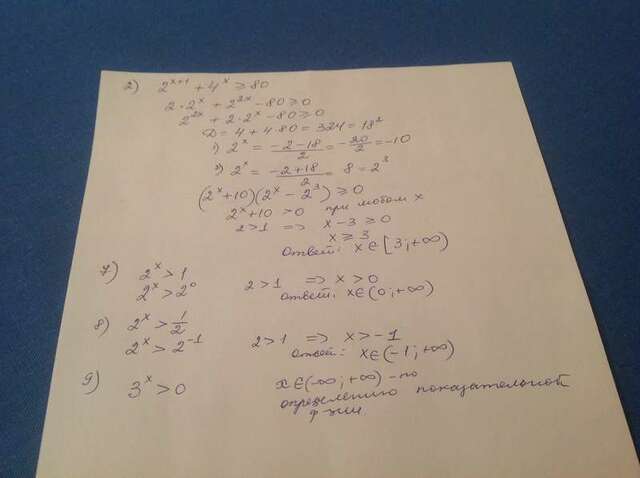 2) 2^(x+1) + 4^x ≥ 80
2·2^x + 2^(2x) - 80 ≥ 0
2^(2x) + 2·2^x - 80 ≥ 0
D = 4 + 4·80 = 324 = 18²
1) 2^x = (-2-18)/2 = -20/2 = -10
2) 2^x = (-2+18)/2 = 8 = 2³
(2^x+10)(2^x - 2³) ≥ 0
2^x+10 > 0 при любом x
2>1 => x-3 ≥ 0
x ≥ 3
Ответ: x∈[3;+∞)
7) 2^x > 1
2^x > 2⁰ 2>1 => x>0
Ответ: x∈(0;+∞)
8) 2^x > 1/2
2^x > 2^(-1) 2>1 => x>-1
Ответ: x∈(-1;+∞)
9) 3^x > 0 x∈(-∞;+∞) - по
определению показательной
ф-ции